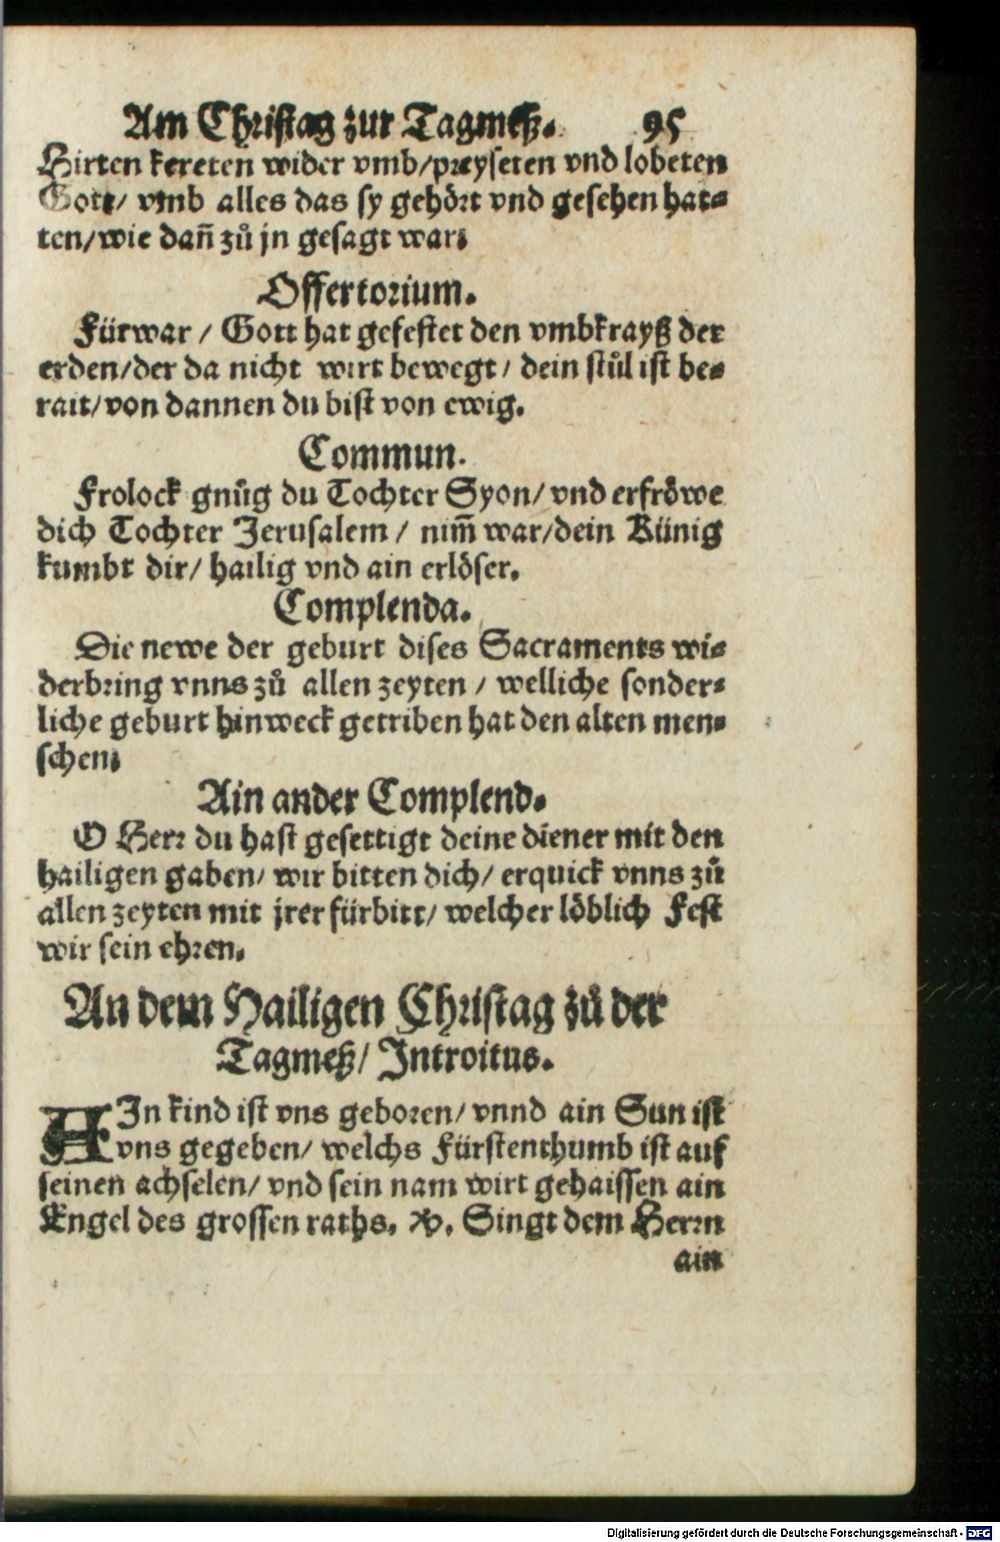 Am Christag zur Tagmeß. 95
Hirten kereten wider vmb/preyseten vnd lobeten
Gott/ vmb alles das sy gehört vnd gesehen hat⸗
ten/wie dañ zů jn gesagt war.
Offertorium.
Fürwar / Gott hat gefestet den vmbkrayß der
erden/der da nicht wirt bewegt/ dein stůl ist be⸗
rait/von dannen du bist von ewig.
Commun.
Frolock gnůg du Tochter Syon/vnd erfröwe
dich Tochter Jerusalem / nim̄ war/dein Künig
kumbt dir/ hailig vnd ain erlöser.
Complenda.
Die newe der geburt dises Sacraments wi⸗
derbring vnns zů allen zeyten / welliche sonder⸗
liche geburt hinweck getriben hat den alten men⸗
schen.
Ain ander Complend.
O Herr du hast gesettigt deine diener mit den
hailigen gaben/ wir bitten dich/ erquick vnns zů
allen zeyten mit jrer fürbitt/ welcher löblich Fest
wir sein ehren.
An dem Hailigen Christag zů der
Tagmeß/ Introitus.
AIn kind ist vns geboren/ vnnd ain Sun ist
vns gegeben/ welchs Fürstenthumb ist auf
seinen achselen/ vnd sein nam wirt gehaissen ain
Engel des grossen raths. ℣. Singt dem Herrn
ain
Digitalisierung gefördert durch die Deutsche Forschungsgemeinschaft - DFG